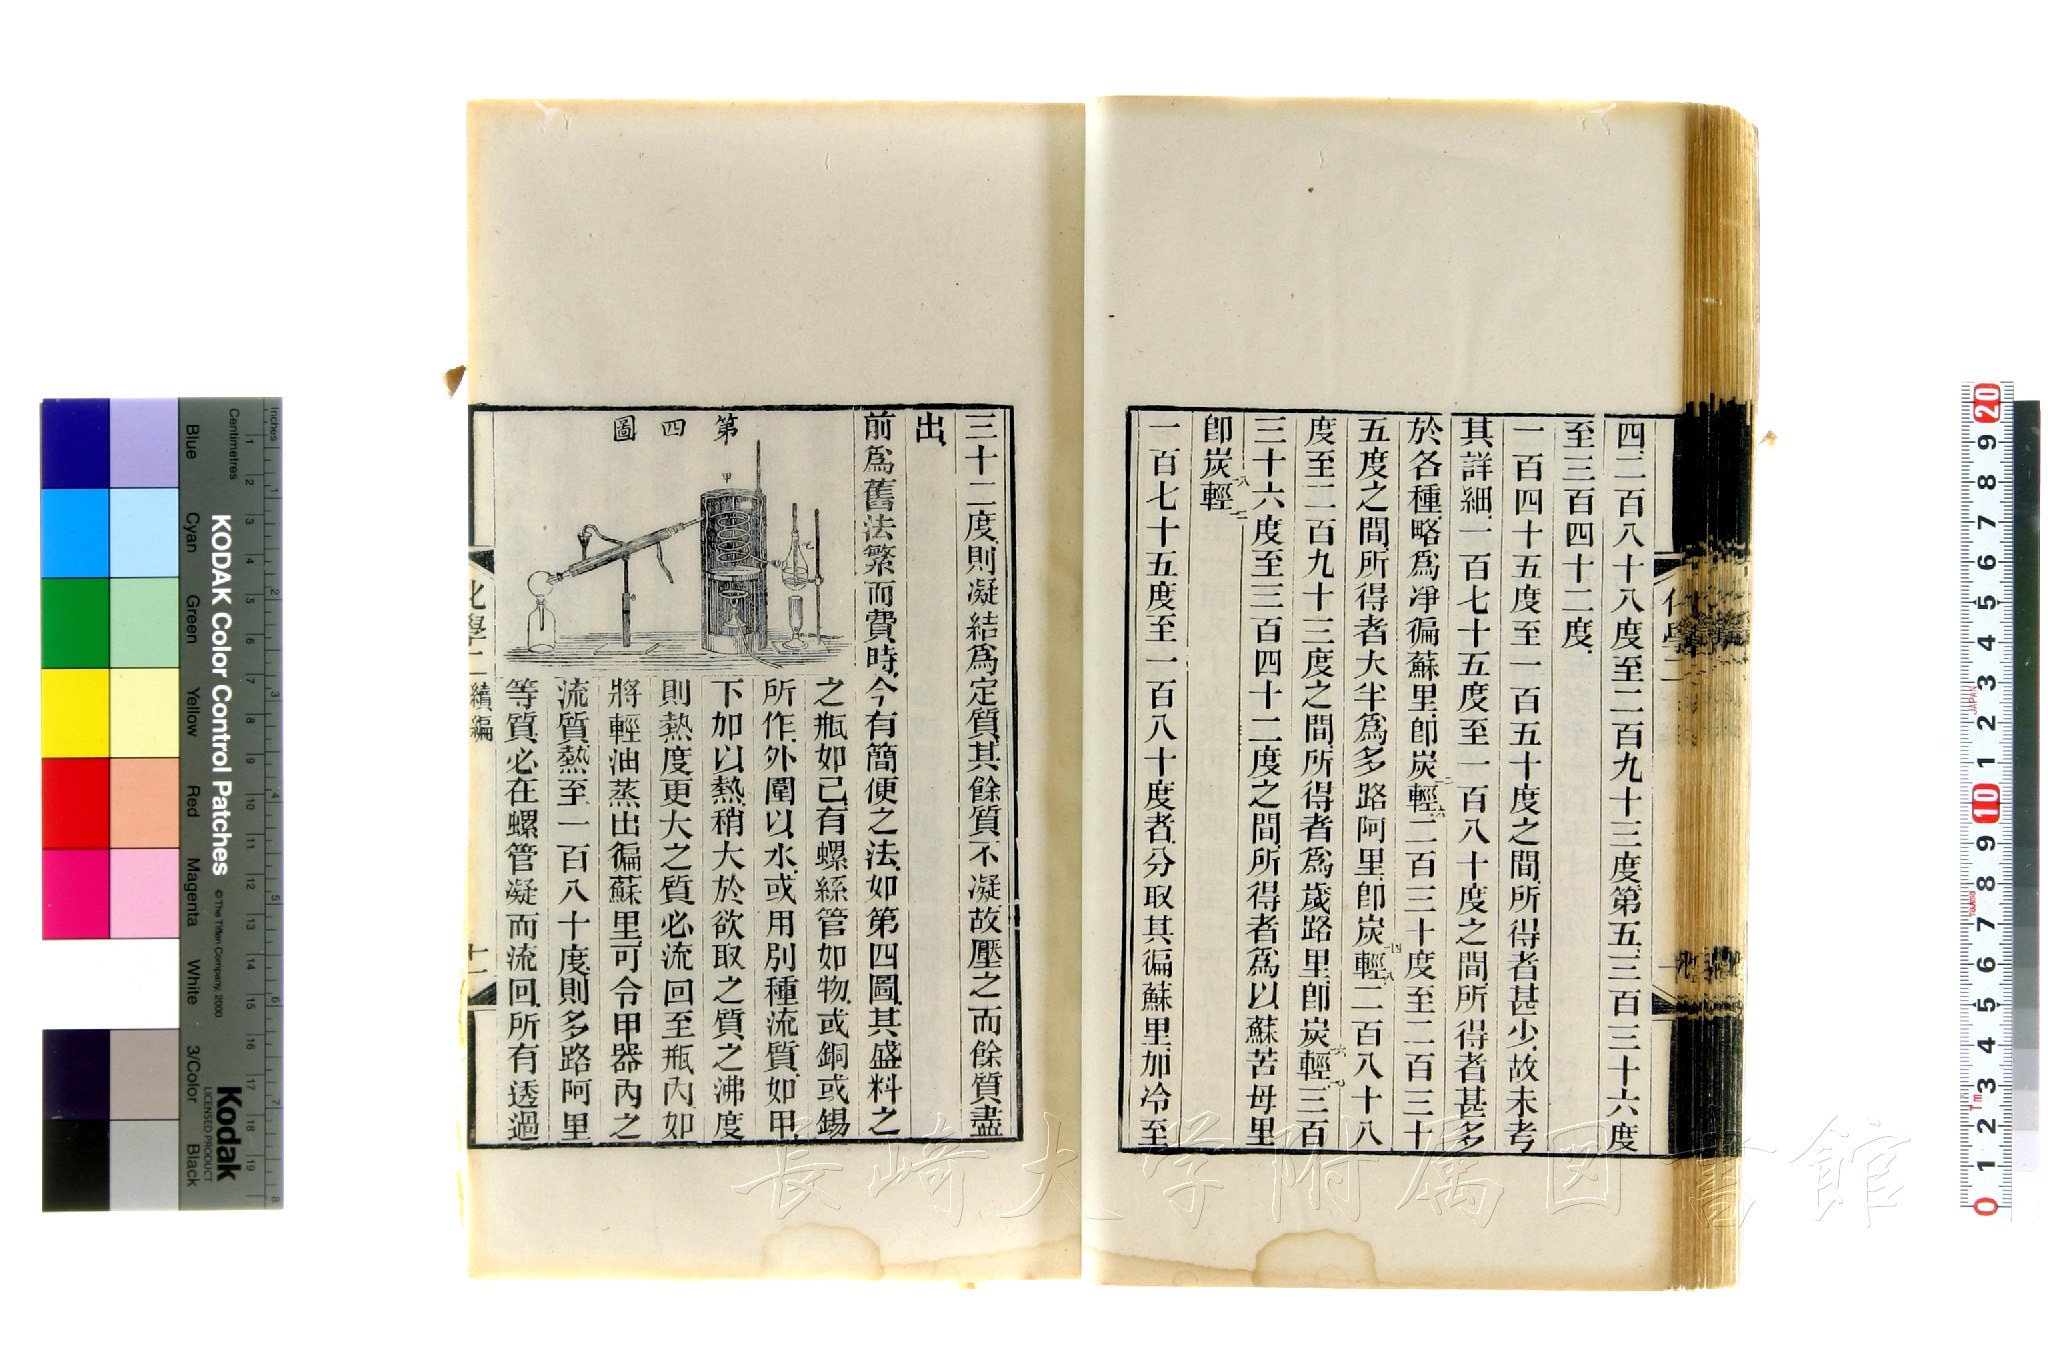 四、二百八十八度至二百九十三度、第五、三百三十六度
至三百四十二度、
一百四十五度至一百五十度之間、所得者甚少、故未考
其詳細、一百七十五度至一百八十度之間、所得者甚多
於各種、略爲净徧蘇里、卽炭輕、二百三十度至二百三十
五度之間、所得者大半爲多路阿里、卽炭輕、二百八十八
度至二百九十三度之間、所得者爲歲路里、卽炭輕、三百
三十六度至三百四十二度之間、所得者爲以蘇苦母里
卽炭輕
一百七十五度至一百八十度者、分取其徧蘇里、加冷至
三十二度、則凝結爲定質、其餘質不凝、故壓之而餘質盡
出、
前爲舊法、繁而費時、今有簡便之法、如第四圖、其盛料之
第四圖
甲
之瓶如己、有螺絲管如物、或銅或錫
所作、外圍以水、或用別種流質、如甲、
下加以熱、稍大於欲取之質之沸度
則熱度更大之質、必流回至瓶內、如
將輕油蒸出徧蘇里、可令甲器內之
流質熱至一百八十度、則多路阿里
等質、必在螺管凝而流回、所有透過
化學二
續編
十一
長崎大学附属図書館
KODAK Color Control Patches
© The Tiffen Company, 2000
Kodak
LICENSED PRODUCT
Inches
Centimetres
Blue
Cyan
Green
Yellow
Red
Magenta
White
3/Color
Black